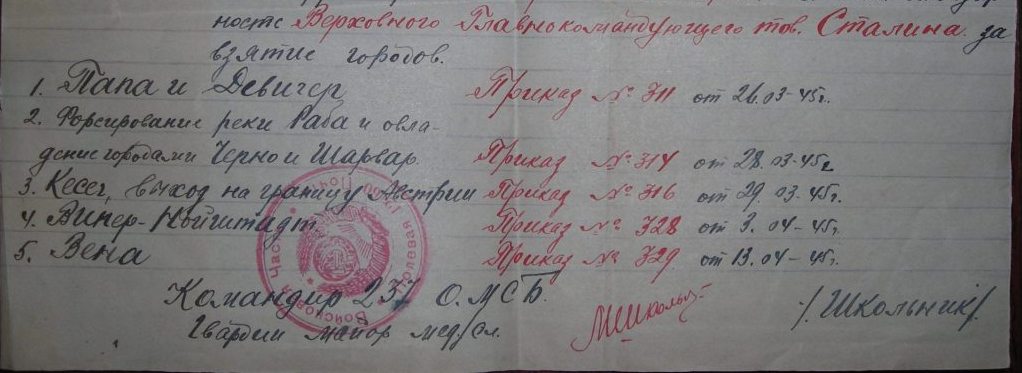 ность Верховного Главнокомандующего тов. Сталина за
взятие городов.
1. Папа и Девичер Приказ № 311 от 26.03-45г.
2. Форсирование реки Раба и овла-
дение городами Черно и Шарвар. Приказ № 314 от 28.03-45г
3. Кесег, выход на границу Австрии Приказ № 316 от 29.03-45г.
4. Винер-Нойштадт Приказ № 328 от 3.04-45г.
5. Вена Приказ № 329 от 13.04-45г.
Командир 237 О.МСБ.
Гвардии майор мед/сл. /Школьник/.
Войсковая Часть Полевая